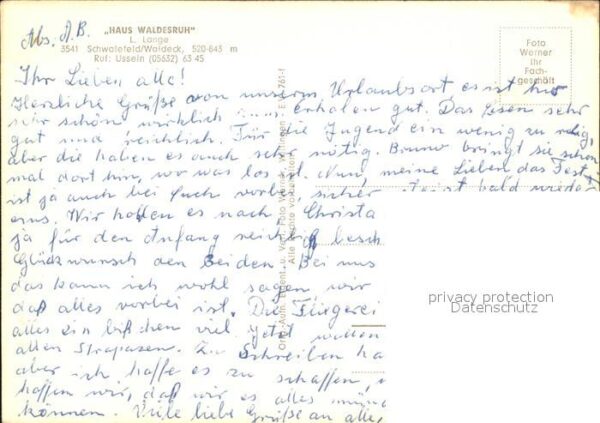 Abs. A.B.
„HAUS WALDESRUH"
L. Lange
3541 Schwalefeld/Waldeck, 520-843 m
Ruf: Usseln (05632) 63 45
Foto
Werner
Ihr
Fach-
geschäft
Ihr Lieben alle!
Herzliche Grüße von unserm Urlaubsort, es ist hier
sehr schön wirklich zum erholen gut. Das Essen sehr
gut und reichlich. Für die Jugend ein wenig zu ruhig,
aber die haben es auch sehr nötig. Bruno bringt sie schon
mal dort hin, wo was los ist. Nun, meine Lieben das Fest
ist ja auch bei Euch vorbei, sicher ist bald wieder
eins. Wir holten es nach Christa
ja für den Anfang reichlich besch
Glückwunsch den Beiden. Bei uns
das kann ich wohl sagen wir
daß alles vorbei ist. Die
alles ein bißchen viel jetzt wollen
allen Strapazen. Zu Schreiben ha
aber ich hoffe es zu schaffen,
hoffen wir, daß wir es alles
können. Viele liebe Grüße an alle,
privacy protection
Datenschutz